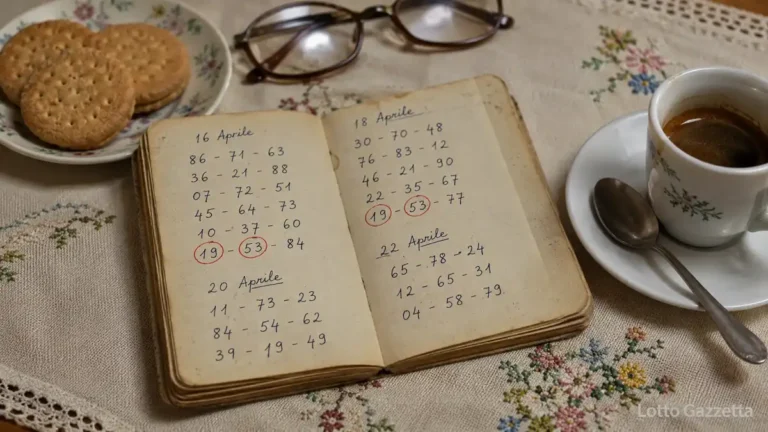 16 Aprile
86 - 71 - 63
36 - 21 - 88
07 - 72 - 51
45 - 64 - 73
10 - 37 - 60
19 - 53 - 84
20 Aprile
11 - 73 - 23
84 - 54 - 62
39 - 19 - 49
18 Aprile
30 - 70 - 48
76 - 83 - 12
46 - 21 - 90
22 - 35 - 67
19 - 53 - 77
22 Aprile
65 - 78 - 24
12 - 65 - 31
04 - 58 - 79
Lotto Gazzetta